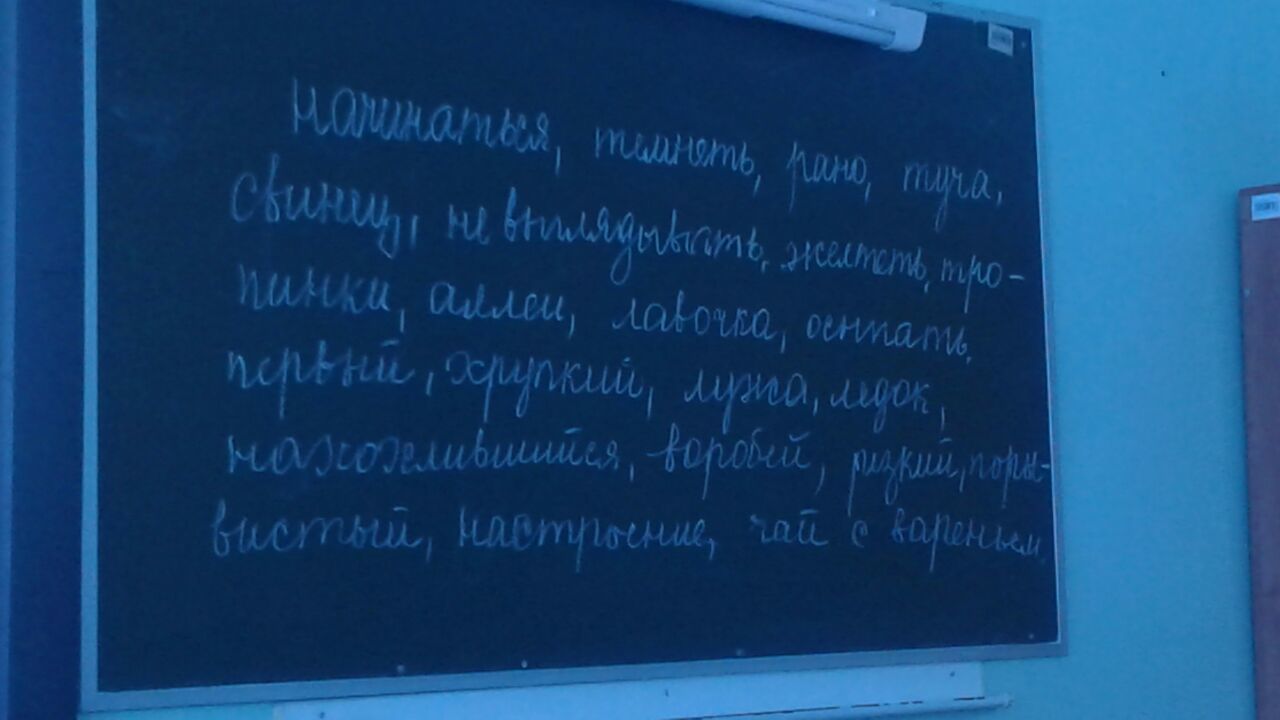 Начинаться, темнеть, рано, туча,
свинец, не выглядывать, желтеть, тро-
пинки, аллеи, лавочка, осыпать,
первый, хрупкий, лужа, ледок,
нахохлившийся, воробей, резкий, поры-
вистый, настроение, чай с вареньем